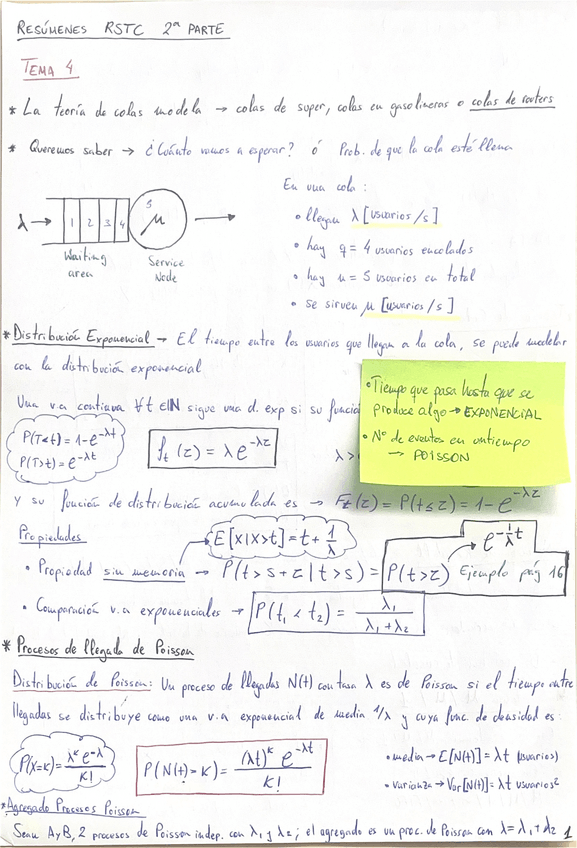 RESÚMENES RSTC 2ª PARTE
TEMA 4
* La teoría de colas modela → colas de super, colas en gasolineras o colas de routers
* Queremos saber → ¿Cuánto vamos a esperar? ó Prob. de que la cola esté llena
En una cola:
• llegan λ [usuarios/s]
• hay q = 4 usuarios encolados
• hay n = 5 usuarios en total
• se sirven μ [usuarios/s]
λ → 1 2 3 4 5 μ →
Waiting area
Service Node
* Distribución Exponencial → El tiempo entre los usuarios que llegan a la cola, se puede modelar
con la distribución exponencial
Una v.a continua ∀t ∈ℕ sigue una d. exp si su función
• Tiempo que pasa hasta que se
produce algo → EXPONENCIAL
• Nº de eventos en un tiempo
→ POISSON
P(T<t) = 1-e^-λt
P(T>t) = e^-λt
f_t (τ) = λ e^-λτ
λ>
Y su función de distribución acumulada es → F_t(τ) = P(t≤τ) = 1-e^-λτ
Propiedades
E[X|X>t] = t + 1/λ
e^-(1/λ)t
• Propiedad sin memoria → P(t>s+τ|t>s) = P(t>τ) Ejemplo pág 16
• Comparación v.a exponenciales → P(t₁<t₂) = λ₁/(λ₁+λ₂)
* Procesos de llegada de Poisson
Distribución de Poisson: Un proceso de llegadas N(t) con tasa λ es de Poisson si el tiempo entre
llegadas se distribuye como una v.a exponencial de media 1/λ y cuya func. de densidad es:
P(X=K) = λ^K e^-λ / K!
P(N(t)=K) = (λt)^K e^-λt / K!
• media → E[N(t)] = λt (usuarios)
• varianza → Var[N(t)] = λt usuarios²
* Agregado Procesos Poisson
Sean A y B, 2 procesos de Poisson indep. con λ₁ y λ₂; el agregado es un proc. de Poisson con λ = λ₁+λ₂
1